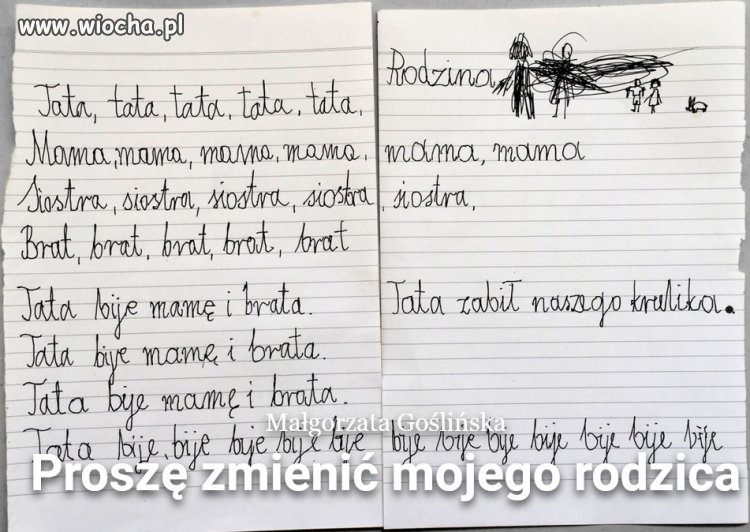 www.wiocha.pl
Tata, tata, tata, tata, tata,
Mama, mama, mama, mama,
Siostra, siostra, siostra, siostra,
Brat, brat, brat, brat, brat
Tata bije mamę i brata.
Tata bije mamę i brata.
Tata bije mamę i brata.
Tata bije, bije bije bije bije
Rodzina
mama, mama
siostra,
Tata zabił naszego krulika.
bije bije bije bije bije bije bije
Małgorzata Goślińska
Proszę zmienić mojego rodzica